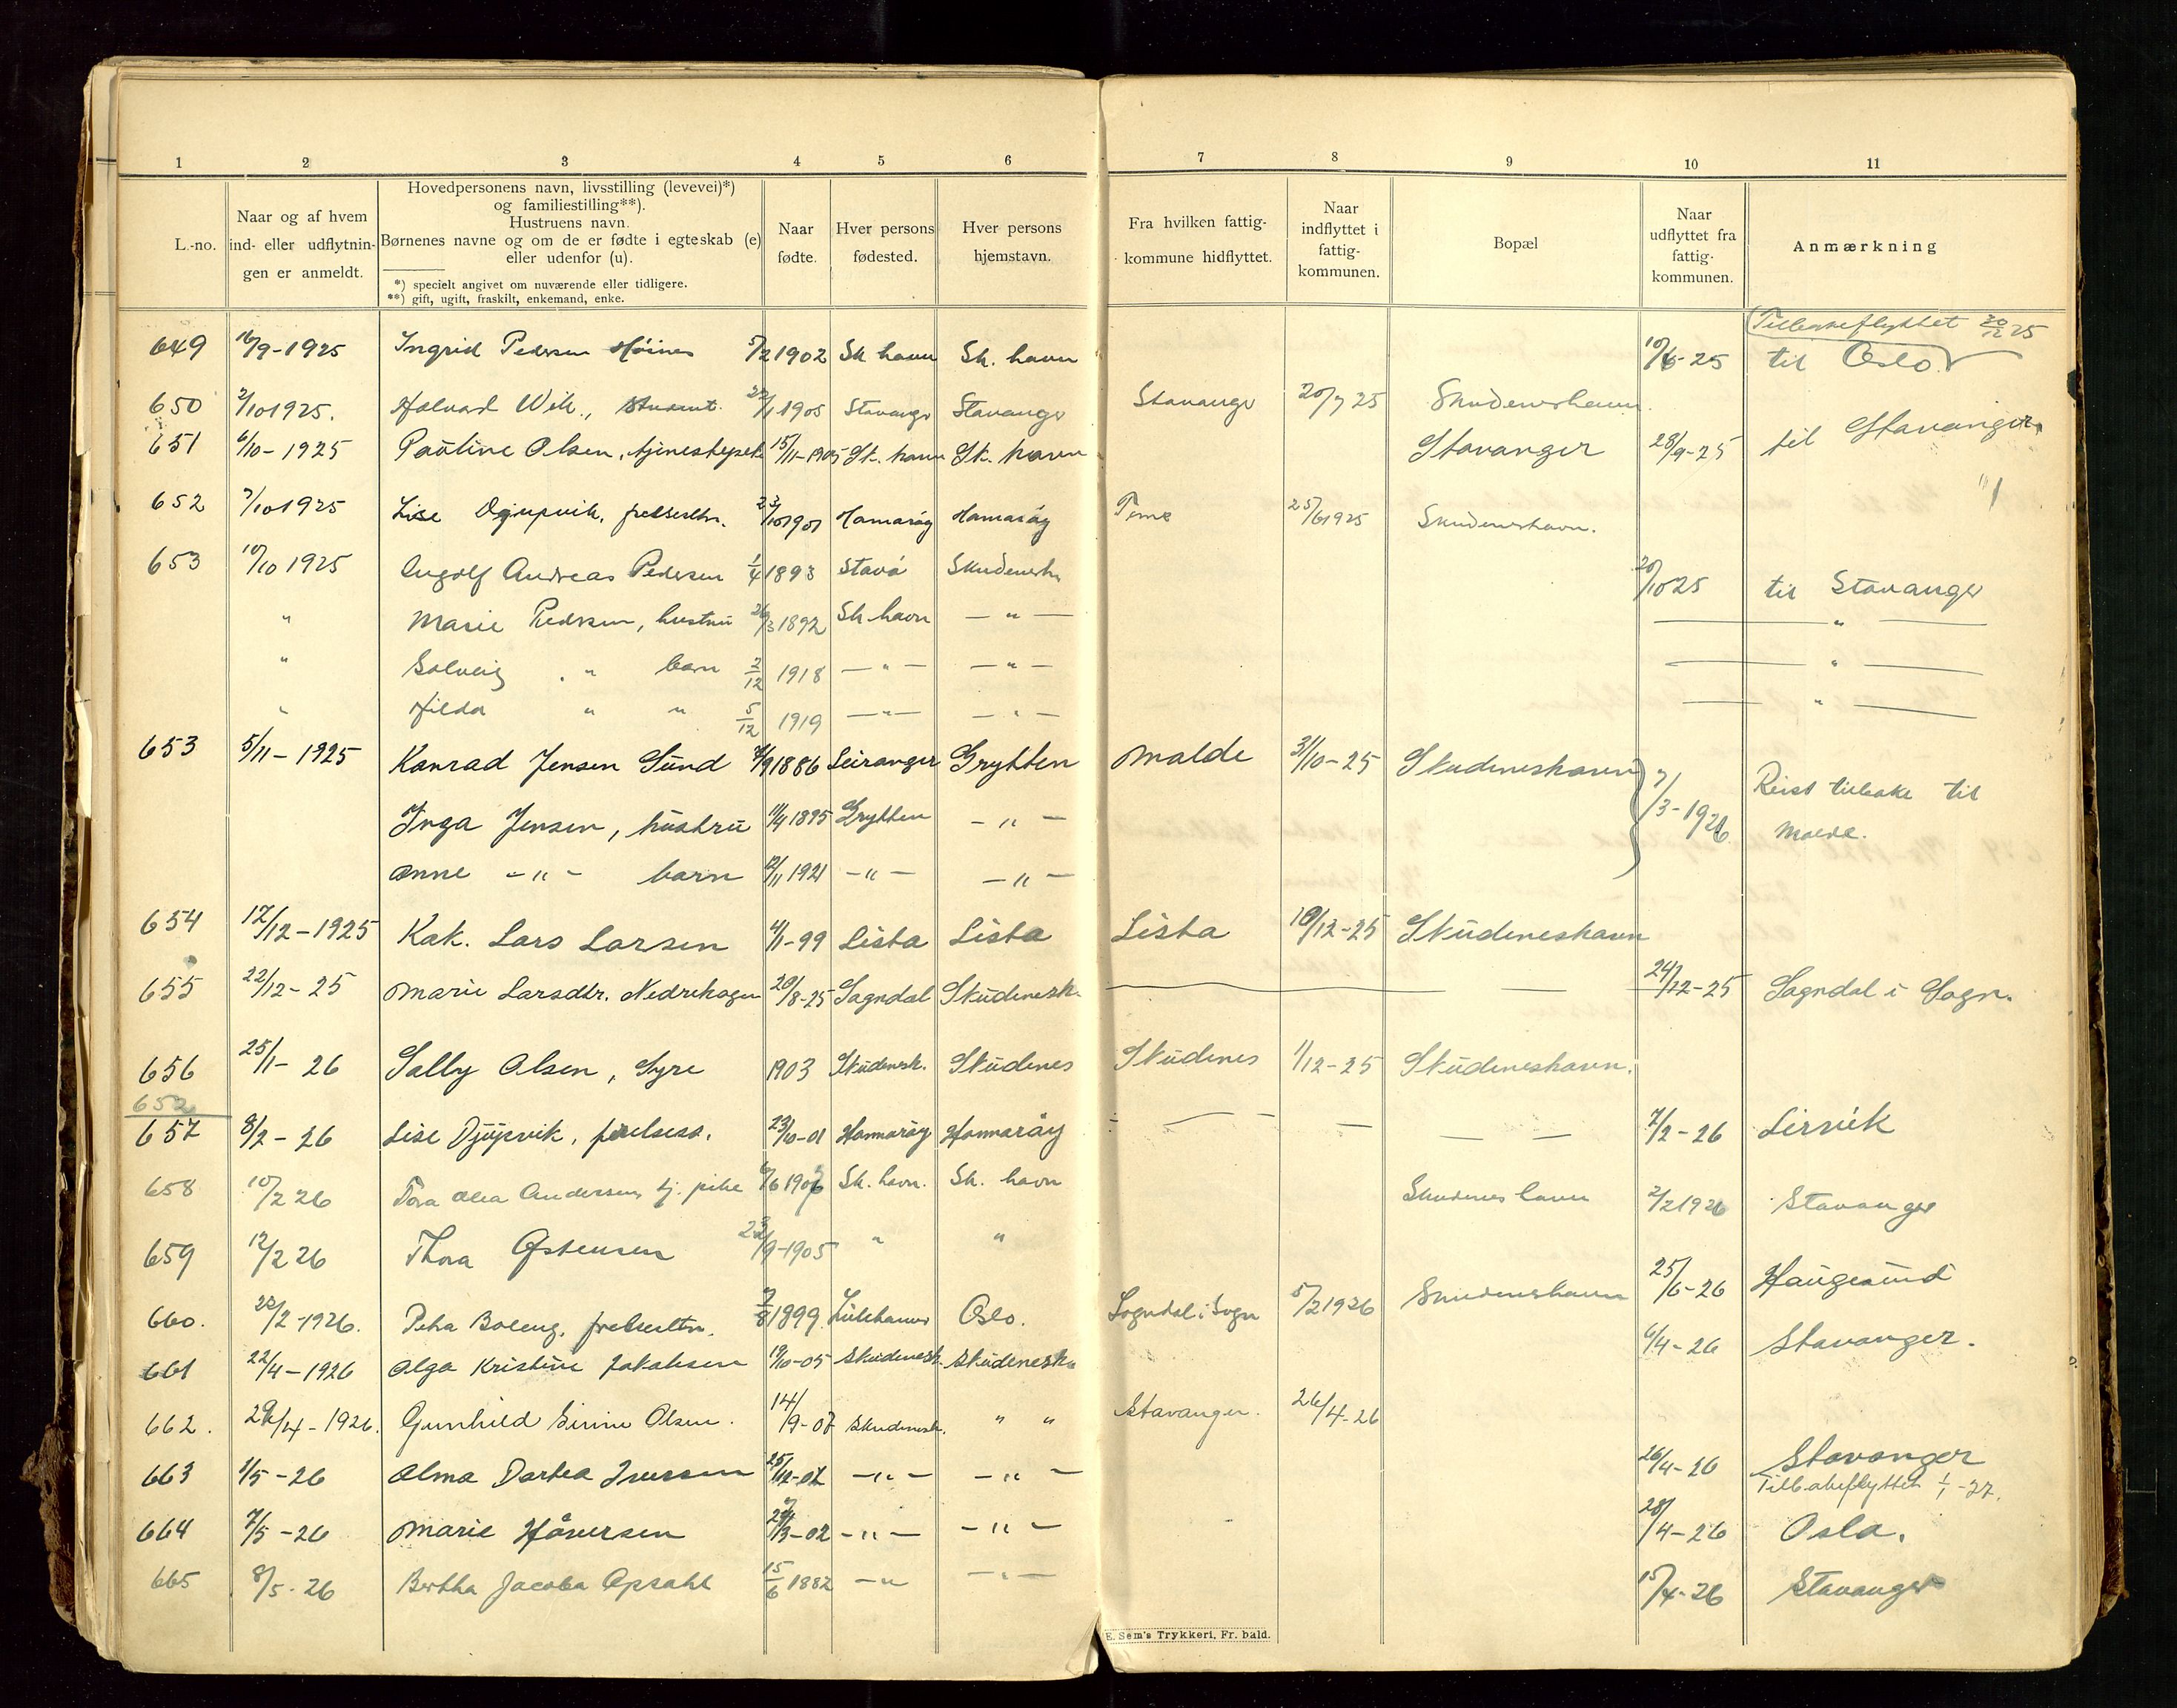 1 2 3 4 5 6 7 8 9 10 11
L.-no.
Naar og af hvem
ind- eller udflytnin-
gen er anmeldt.
Hovedpersonens navn, livsstilling (levevei)*)
og familiestilling**).
Hustruens navn.
Børnenes navne og om de er fødte i egteskab (e)
eller udenfor (u).
*) specielt angivet om nuværende eller tidligere.
**) gift, ugift, fraskilt, enkemand, enke.
Naar
fødte.
Hver persons
fødested.
Hver persons
hjemstavn.
Fra hvilken fattig-
kommune hidflyttet.
Naar
indflyttet i
fattig-
kommunen.
Bopæl
Naar
udflyttet fra
fattig-
kommunen.
Anmærkning
Tilbakeflyttet 20/12 25
649 16/9-1925 Ingrid Pedersen Høines 5/2 1902 Sk havn Sk. havn 19/6-25 til Oslo
650 2/10 1925. Halvard Wik., student. 22/1 1905 Stavanger Stavanger Stavanger 20/7 25 Skudeneshavn
651 6/10-1925 Pauline Olsen, tjenestepike 15/11-1905 Sk. havn Sk. havn Stavanger 28/9-25 til Stavanger
652 7/10 1925 Lise Djupvik, frelseoltn. 23/10 1901 Hamarøy Hamarøy Time 25/6 1925 Skudeneshavn. "
653 10/10 1925 Ingolf Andreas Pedersen 1/4 1893 Stavå Skudenesh 20/10 25 til Stavanger
" Marie Pedersen, hustru 26/3 1892 Sk havn — " — — " —
" Solveig " barn 2/12 1918 — " — — " — — " —
" Hilda " " 5/12 1919 — " — — " — — " —
653 5/11-1925 Konrad Jensen Sund 4/9 1886 Leiranger Grytten Molde 31/10-25 Skudeneshavn 7/3-1926 Reist tilbake til
Inga Jensen, hustru 11/4 1895 Grytten — " — Molde.
Anne — " — barn 12/11 1921 — " — — " —
654 17/12-1925 Kak. Lars Larsen 4/1-99 Lista Lista Lista 10/12-25 Skudeneshavn
655 22/12-25 Marie Larsdtr. Nedrehagen 20/8-25 Sogndal Skudenesh. — — 24/12-25 Sogndal i Sogn.
656 25/1-26 Sally Olsen, Syre 1903 Skudenesh. Skudenes Skudenes 1/12-25 Skudeneshavn.
652
657 8/2-26 Lise Djupvik, frelseso. 23/10-01 Hammarøy Hammarøy — — — — 7/2-26 Lervik
658 10/2 26 Tora Olea Andersen, tj. pike 6/6 1906 Sk. havn. Sk. havn Skudeneshavn 2/2 1926 Stavanger
659 12/2 26 Thora Østensen 23/9-1905 " " 25/6-26 Haugesund
660. 22/2-1926. Petra Boleng, frelseoltn. 7/8 1899 Lillehamer Oslo. Sogndal i Sogn 5/2 1926 Skudeneshavn
661 22/4-1926 Olga Kristine Jakobsen 19/10-05 Skudenesh. Skudenesh 6/4-26 Stavanger.
662. 29/4-1926. Gunhild Sirine Olsen. 14/9-07 Skudenesh. " " Stavanger. 26/4-26
663 1/5-26 Alma Dortea Iversen 25/12-07 — " — — " — 26/4-26 Stavanger
Tilbakeflyttet 1/1-27.
664 7/5-26 Marie Håversen /3-02 — " — — " — 28/4-26 Oslo.
665 8/5-26 Bertha Jacoba Opsahl 15/6 1882 — " — " — 15/4-26 Stavanger
E. Sem's Trykkeri, Fr. hald.